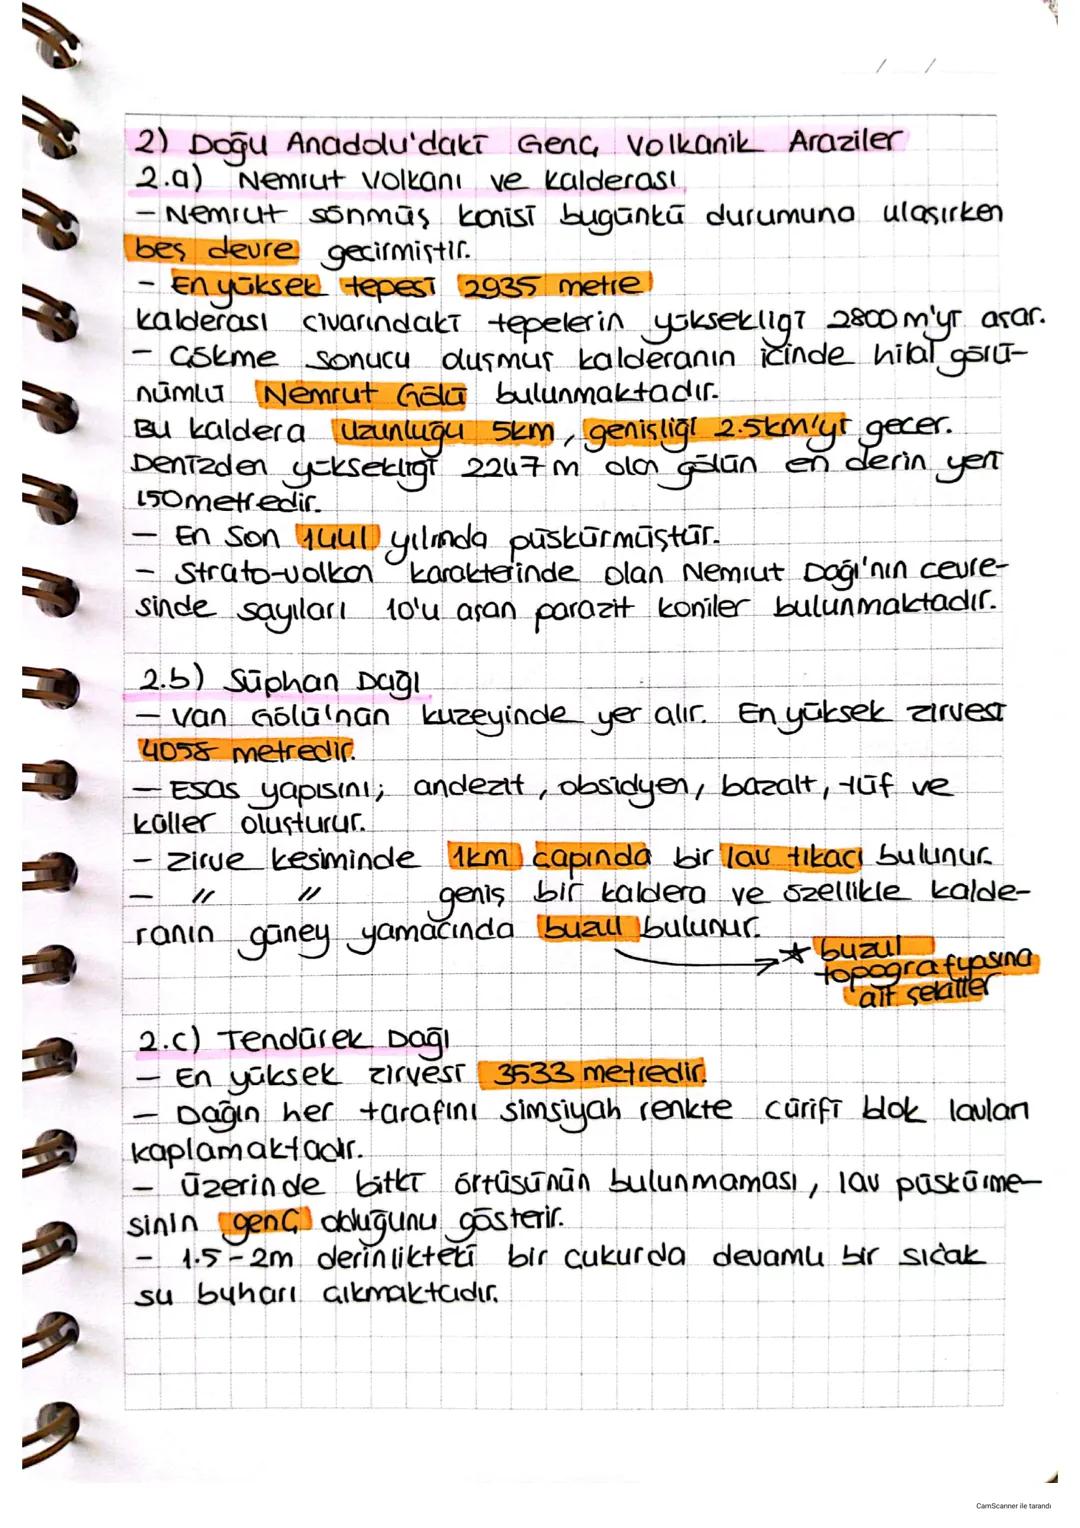 / /
2) Doğu Anadolu'daki Genç Volkanik Araziler
2.a) Nemrut Volkanı ve Kalderası
- Nemrut sönmüş konisi bugünkü durumuna ulaşırken
beş devre geçirmiştir.
- En yüksek tepesi 2935 metre
kalderası civarındaki tepelerin yüksekliği 2800 m'yi aşar.
- Çökme sonucu oluşmuş kalderanın içinde hilal görü-
nümlü Nemrut Gölü bulunmaktadır.
Bu kaldera uzunluğu 5km, genişliği 2.5km'yi geçer.
Denizden yüksekliği 2247 m olan gölün en derin yeri
150 metredir.
- En son 1441 yılında püskürmüştür.
- Strato-volkan karakterinde olan Nemrut Dağı'nın çevre-
sinde sayıları 10'u aşan parazit koniler bulunmaktadır.
2.b) Süphan Dağı
- Van Gölü'nün kuzeyinde yer alır. En yüksek zirvesi
4058 metredir.
- Esas yapısını; andezit, obsidyen, bazalt, tüf ve
küller oluşturur.
- Zirve kesiminde 1km çapında bir lav tıkacı bulunur.
- " " geniş bir kaldera ve özellikle kalde-
ranın güney yamacında buzul bulunur.
→ * buzul
topografyasına
ait şekiller
2.c) Tendürek Dağı
- En yüksek zirvesi 3533 metredir.
- Dağın her tarafını simsiyah renkte cürifi blok lavları
kaplamaktadır.
- Üzerinde bitki örtüsünün bulunmaması, lav püskürme-
sinin genç olduğunu gösterir.
- 1.5-2m derinlikteki bir çukurda devamlı bir sıcak
su buharı çıkmaktadır.
CamScanner ile tarandı